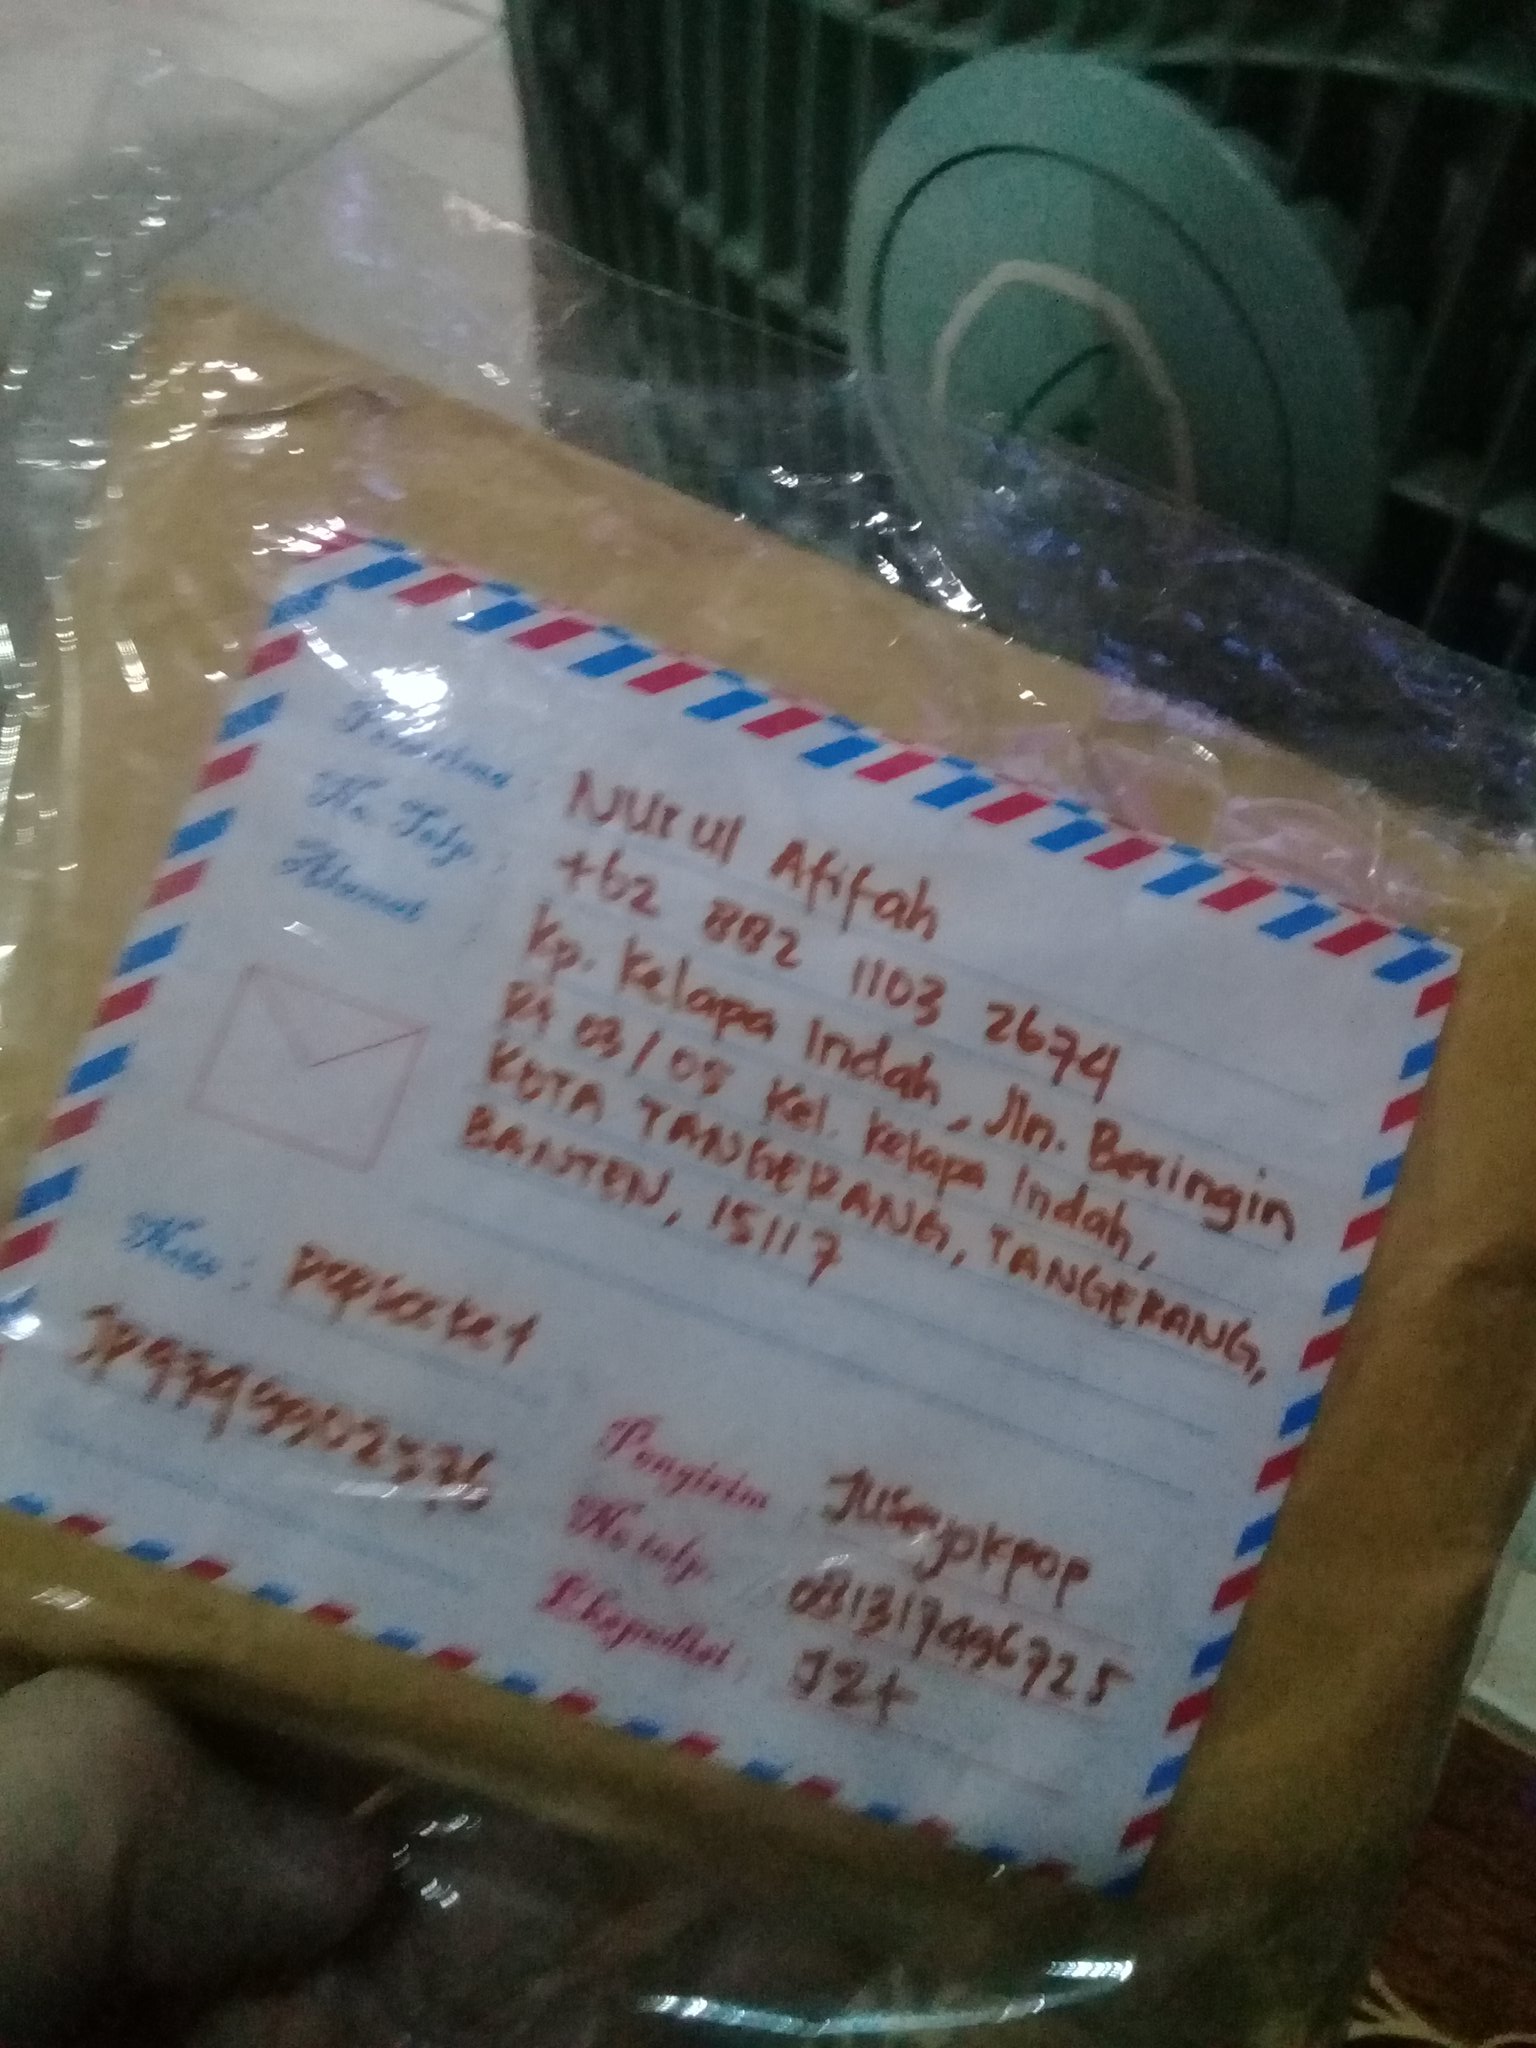 Penerima : Nurul Afifah
No. Telp : +62 882 1103 2674
Alamat : Kp. Kelapa Indah, Jln. Beringin
Rt 03/05 Kel. Kelapa Indah,
KOTA TANGERANG, TANGERANG,
BANTEN, 15117
: popsocket
Pengirim : Juseyokpop
No telp. : 081317436725
Ekspedisi :